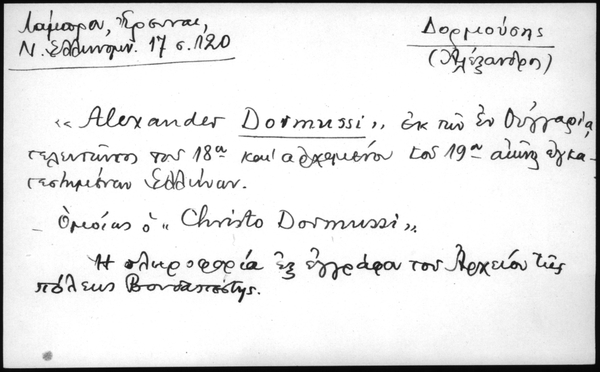 Λάμπρου, Ἔρευναι,
Ν. Ἑλληνομν. 17 σ. 120
Δορμούσης
(Ἀλέξανδρος)
"Alexander Dormussi", ἐκ τῶν ἐν Οὑγγαρίᾳ,
τελευτῶντος τοῦ 18ου καὶ ἀρχομένου τοῦ 19ου αἰῶνος ἐγκα-
τεστημένων Ἑλλήνων.
- Ὁμοίως ὁ "Christo Dormussi",
Ἡ πληροφορία ἐξ ἐγγράφων τοῦ Ἀρχείου τῆς
πόλεως Βουδαπέστης.